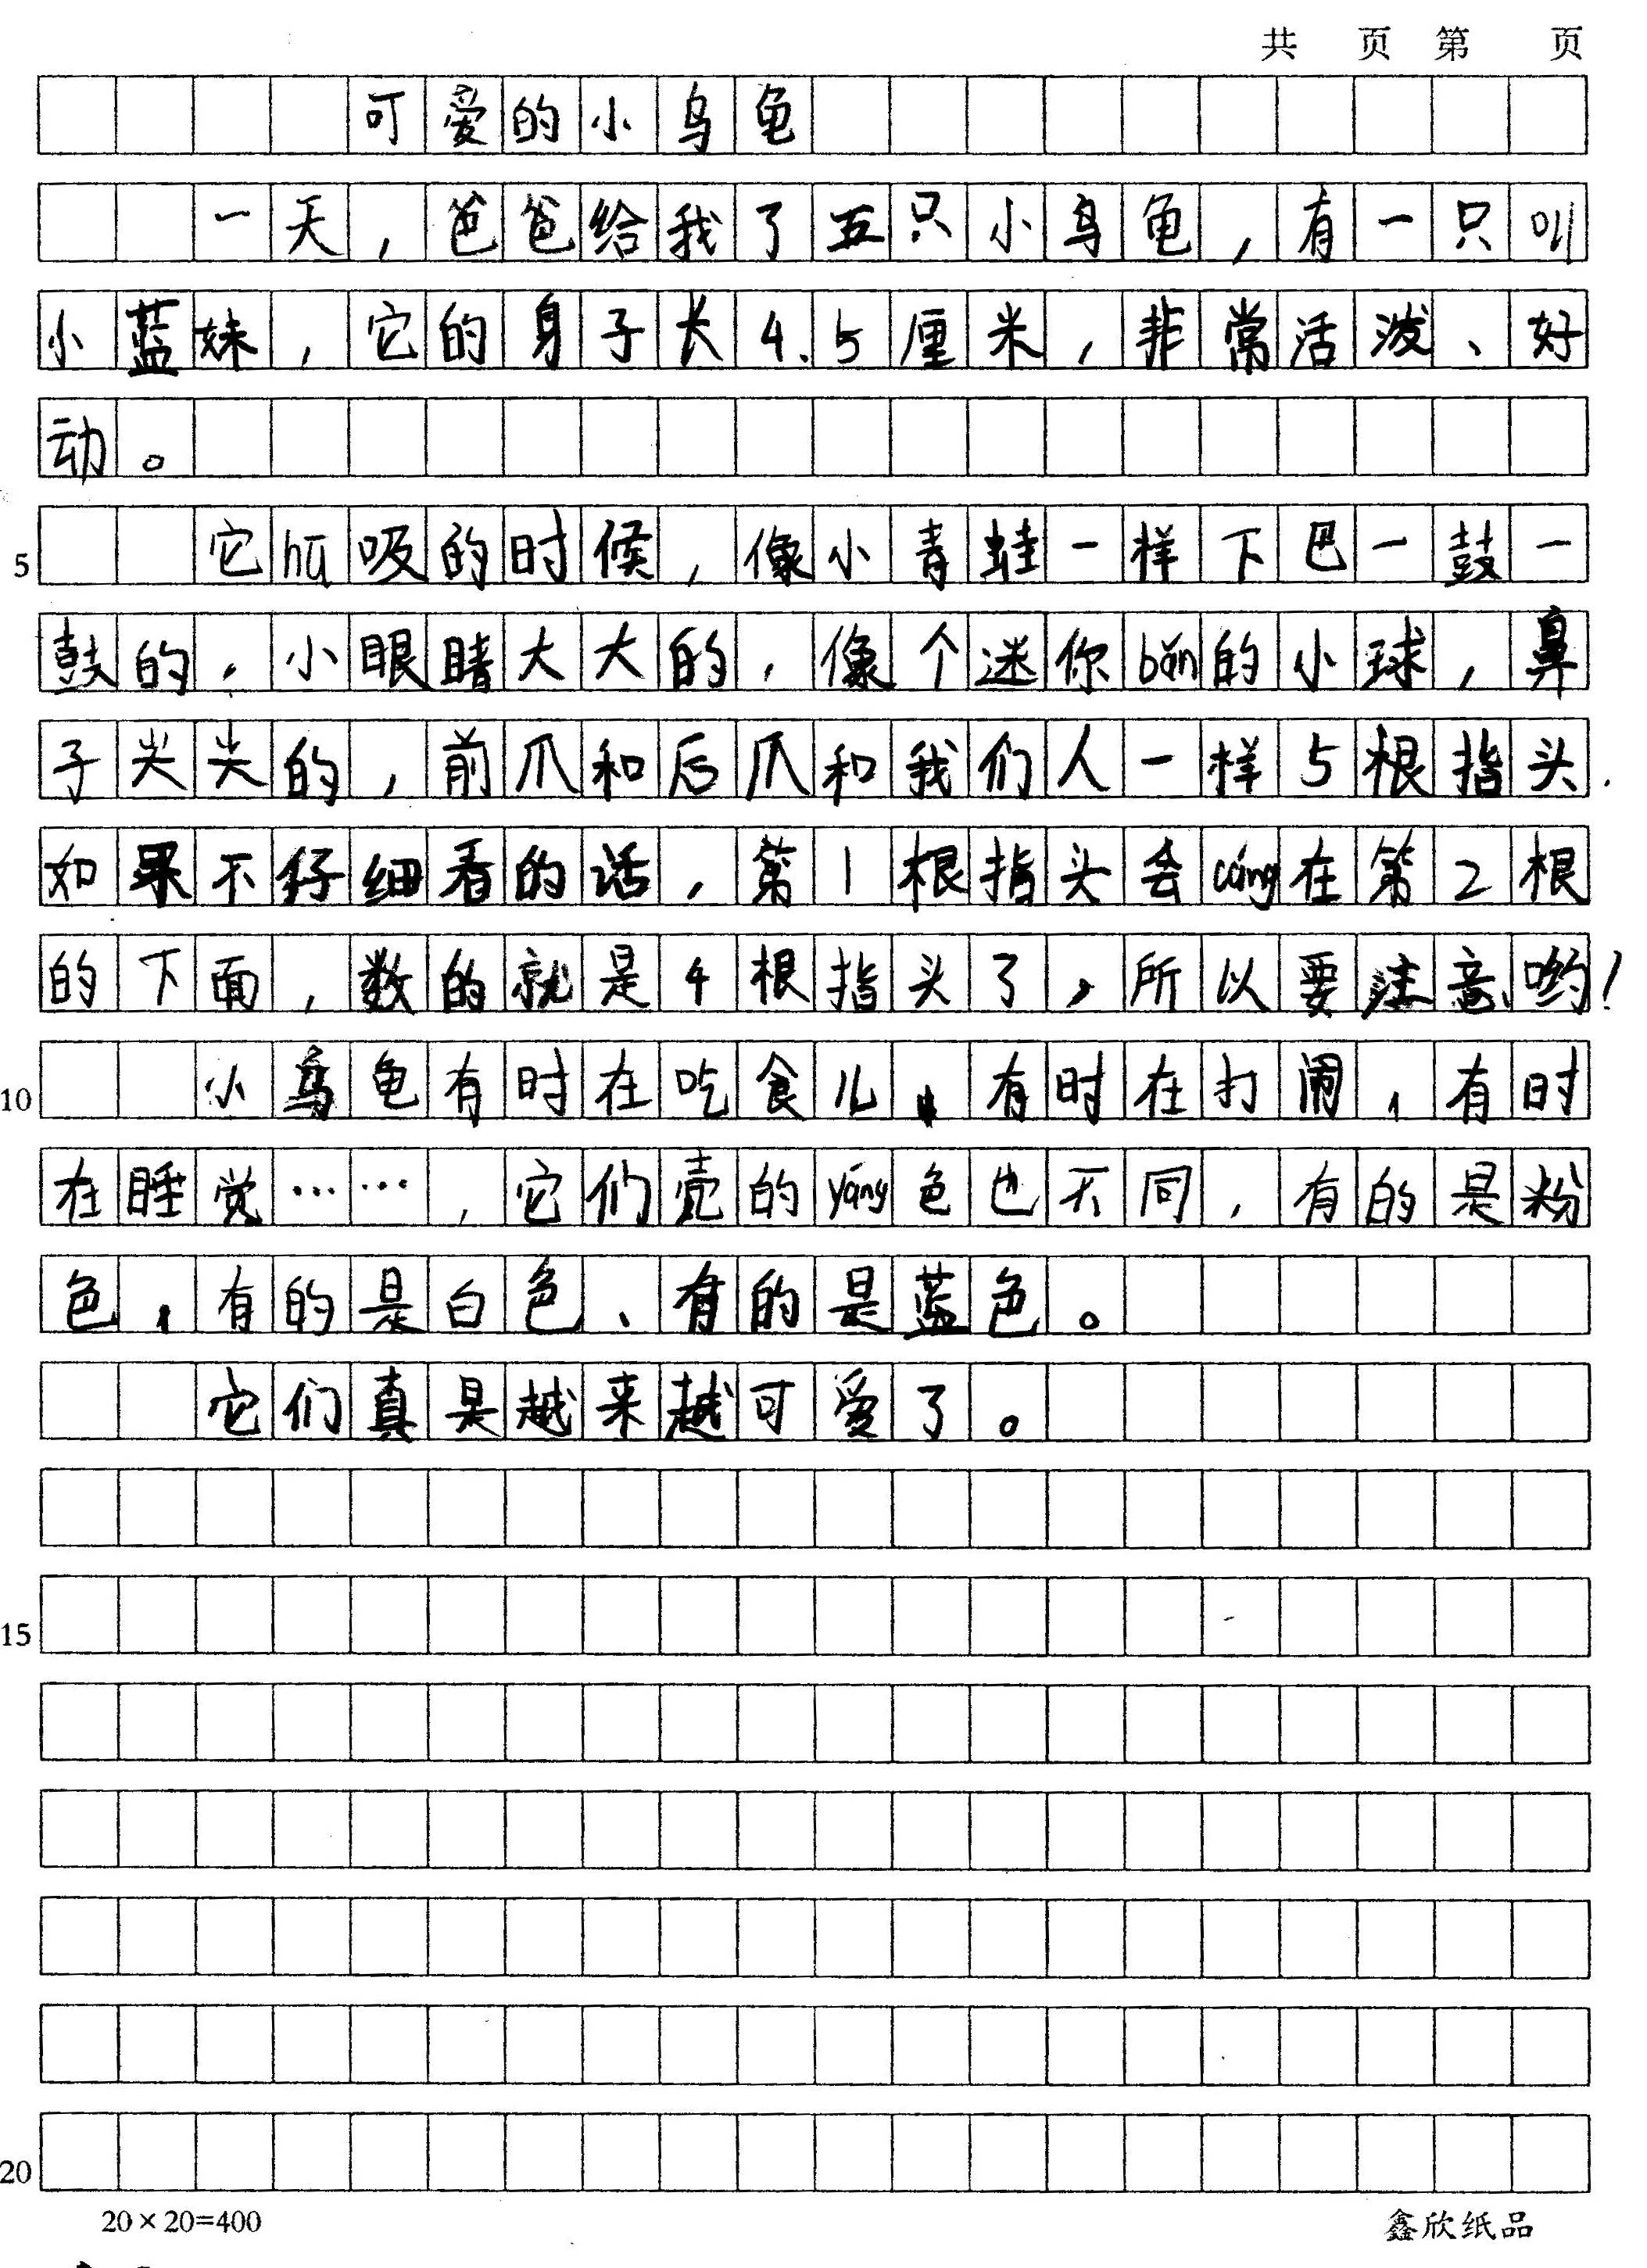 共 页 第 页
可爱的小乌龟
一天，爸爸给我了五只小乌龟，有一只叫
小蓝妹，它的身子长4.5厘米，非常活泼、好
动。
5 它hū吸的时候，像小青蛙一样下巴一鼓一
鼓的，小眼睛大大的，像个迷你bǎn的小球，鼻
子尖尖的，前爪和后爪和我们人一样5根指头.
如果不仔细看的话，第1根指头会cáng在第2根
的下面，数的就是4根指头了，所以要注意哟！
10 小乌龟有时在吃食儿，有时在打闹，有时
在睡觉……，它们壳的yáng色也不同，有的是粉
色，有的是白色、有的是蓝色。
它们真是越来越可爱了。
15
20
20×20=400 鑫欣纸品